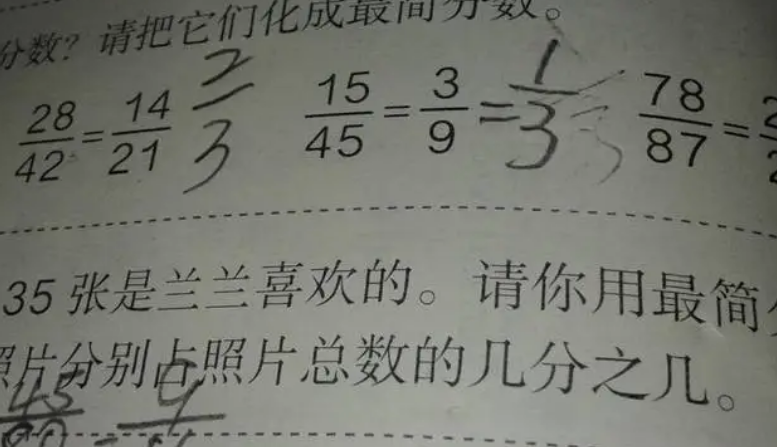 分数？请把它们化成最简分数。
28/42 = 14/21 2/3 15/45 = 3/9 = 1/3 78/87 =
35张是兰兰喜欢的。请你用最简
照片分别占照片总数的几分之几。
45 = 9